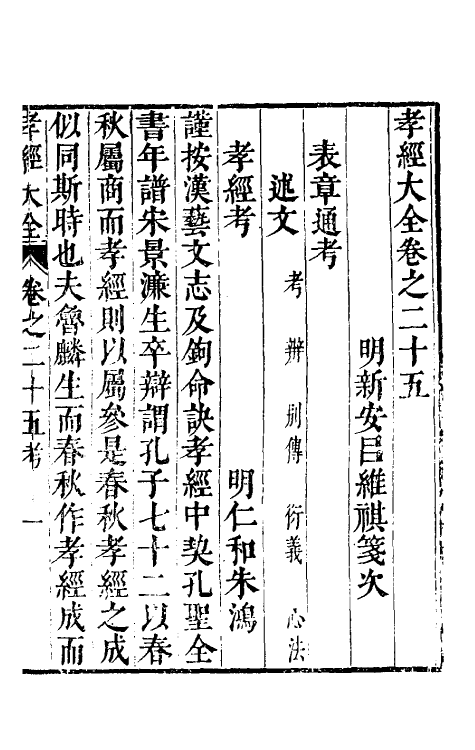 孝經大全卷之二十五
明新安呂維祺箋次
表章通考
述文 考 辨 別傳 衍義 心法
孝經考 明仁和朱鴻
謹按漢藝文志及鉤命訣孝經中契孔聖全
書年譜宋景濂生卒辯謂孔子七十二以春
秋屬商而孝經則以屬參是春秋孝經之成
似同斯時也夫魯麟生而春秋作孝經成而
孝經大全 卷之二十五考 一